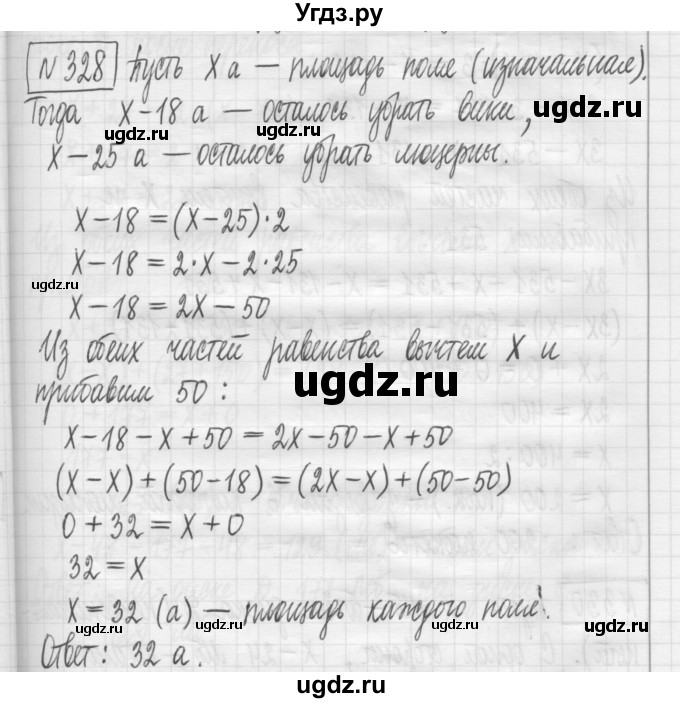 Угдз.ру
N 328 Пусть x а — площадь поле (изначальная).
Тогда x-18 а — осталось убрать вики,
ugdz.ru
ugdz.ru
ugdz.ru
x-25 а — осталось убрать люцерны.
x-18=(x-25)·2
x-18=2·x-2·25
ugdz.ru
ugdz.ru
x-18=2x-50
Из обеих частей равенства вычтем x и
ugdz.ru
прибавим 50:
x-18-x+50=2x-50-x+50
(x-x)+(50-18)=(2x-x)+(50-50)
0+32=x+0
32=x
x=32 (а) — площадь каждого поле.
ugdz.ru
ugdz.ru
ugdz.ru
Ответ: 32 а.
ugdz.ru